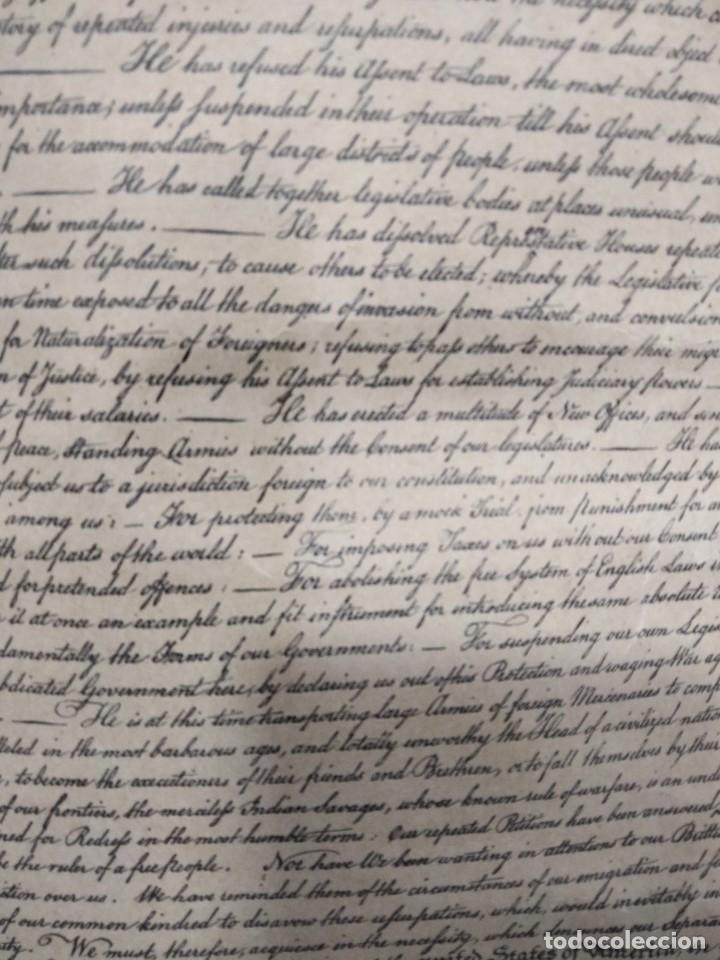 the necessity which
story of repeated injuries and usurpations, all having in direct object
He has refused his Assent to Laws, the most wholesome
importance, unless suspended in their operation till his Assent shou
for the accommodation of large districts of people, unless those people w
He has called together legislative bodies at places unusual, un
th his measures. ——— He has dissolved Representative Houses repeate
ter such dissolutions, to cause others to be elected; whereby the Legislative p
n time exposed to all the dangers of invasion from without, and convulsion
for Naturalization of Foreigners; refusing to pass others to encourage their migr
n of Justice, by refusing his Assent to Laws for establishing Judiciary powers —
t of their salaries. ——— He has erected a multitude of New Offices, and sen
f peace, Standing Armies without the Consent of our legislatures. ——— He ha
subject us to a jurisdiction foreign to our constitution, and unacknowledged by
among us: — For protecting them, by a mock Trial, from punishment for an
th all parts of the world: — For imposing Taxes on us without our Consent
d for pretended offences: — For abolishing the free System of English Laws in
r it at once an example and fit instrument for introducing the same absolute r
damentally the Forms of our Governments: — For suspending our own Legis
bdicated Government here, by declaring us out of his Protection and waging War ag
——— He is at this time transporting large Armies of foreign Mercenaries to comp
lleled in the most barbarous ages, and totally unworthy the Head of a civilized natio
e, to become the executioners of their friends and Brethren, or to fall themselves by their
of our frontiers, the merciless Indian Savages, whose known rule of warfare, is an und
ned for Redress in the most humble terms: Our repeated Petitions have been answered
be the ruler of a free People. Nor have We been wanting in attentions to our Brittis
ction over us. We have reminded them of the circumstances of our emigration and
of our common kindred to disavow these usurpations, which, would inevitably in
ty. We must, therefore, acquiesce in the necessity, which our Separa
United States of America, in
todocoleccion